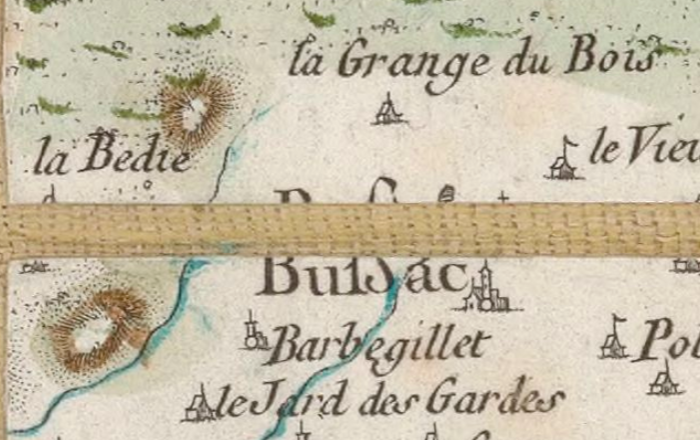 la Grange du Bois
la Bedie
le Vieu
Bussac
Barbegillet
Pol
le Jard des Gardes